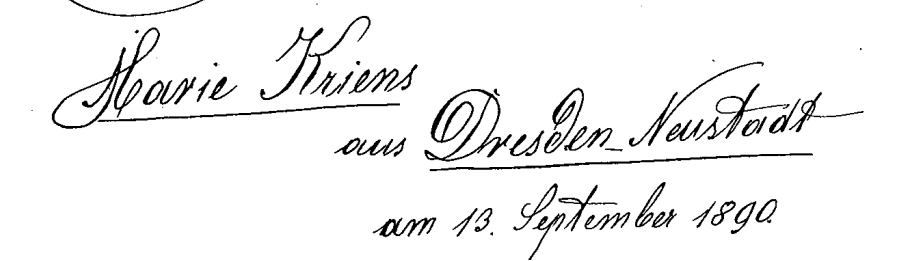 Marie Kriens
aus Dresden-Neustadt
am 13. September 1890.